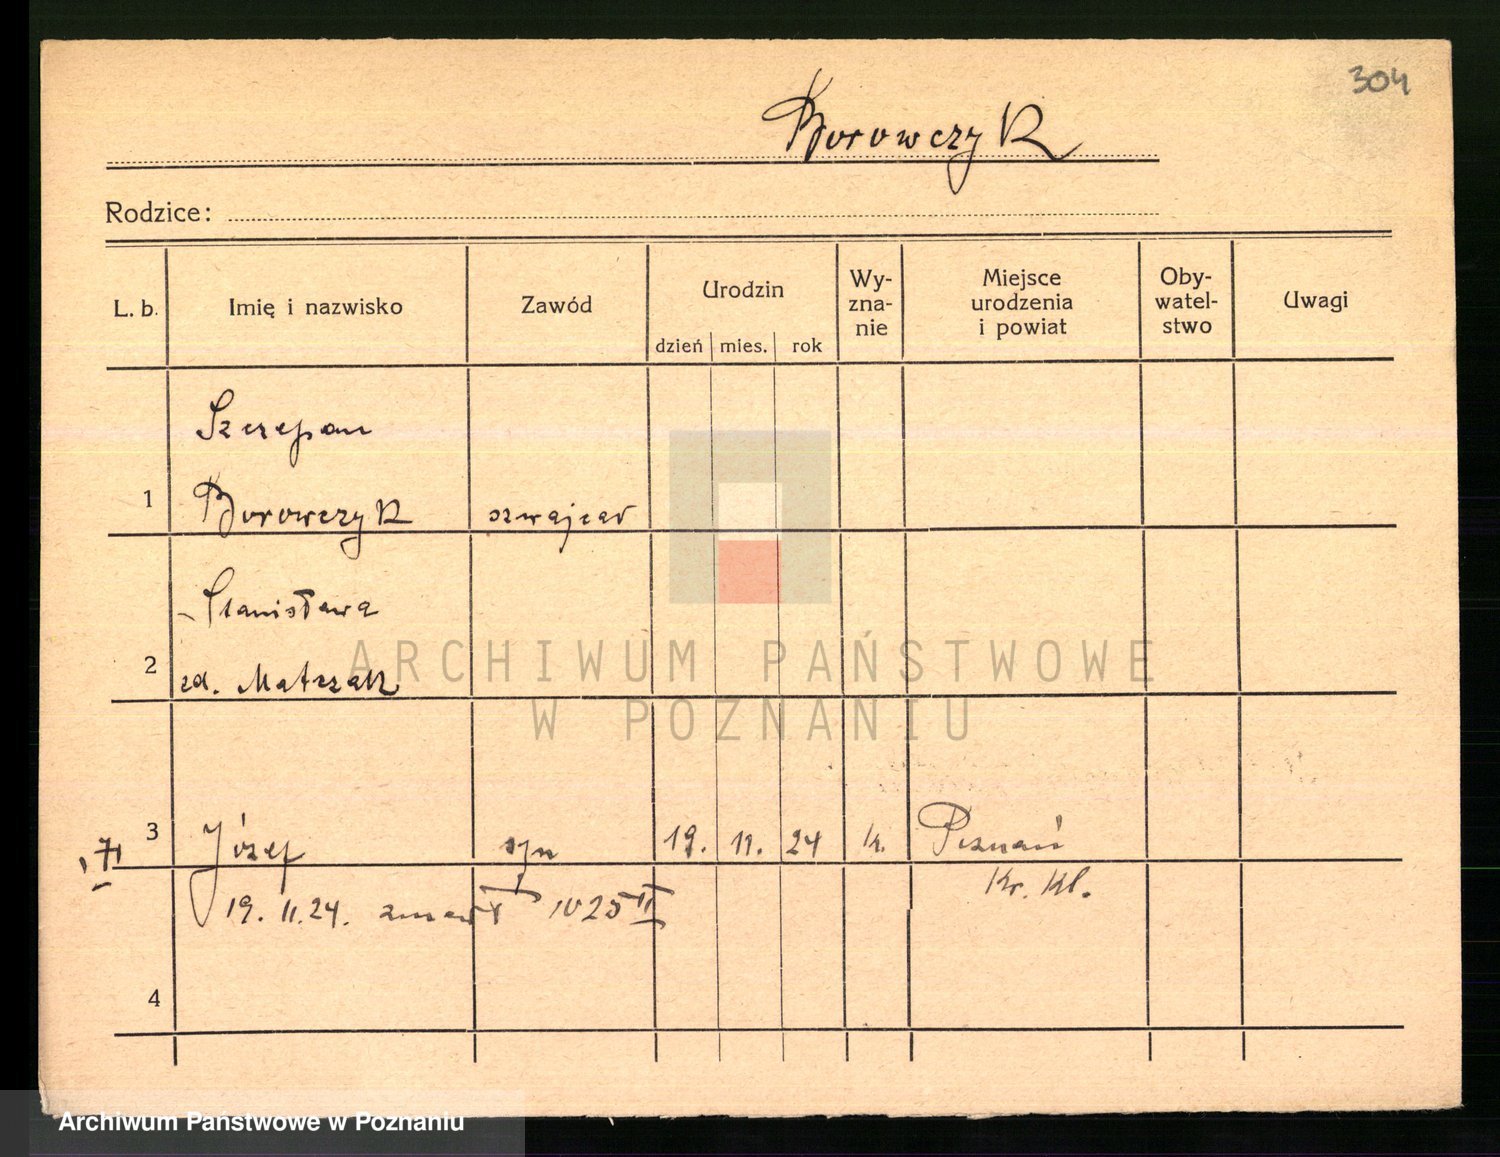 304
Borowczyk
Rodzice:
L. b.
Imię i nazwisko
Zawód
Urodzin
dzień mies. rok
Wy-
zna-
nie
Miejsce
urodzenia
i powiat
Oby-
watel-
stwo
Uwagi
Szczepan
1 Borowczyk szwajcar
Stanisława
2 zd. Matczak
3 Józef syn 19. 11. 24 k. Poznań
Kr. Kl.
19. 11. 24.
4
ARCHIWUM PAŃSTWOWE
W POZNANIU
Archiwum Państwowe w Poznaniu